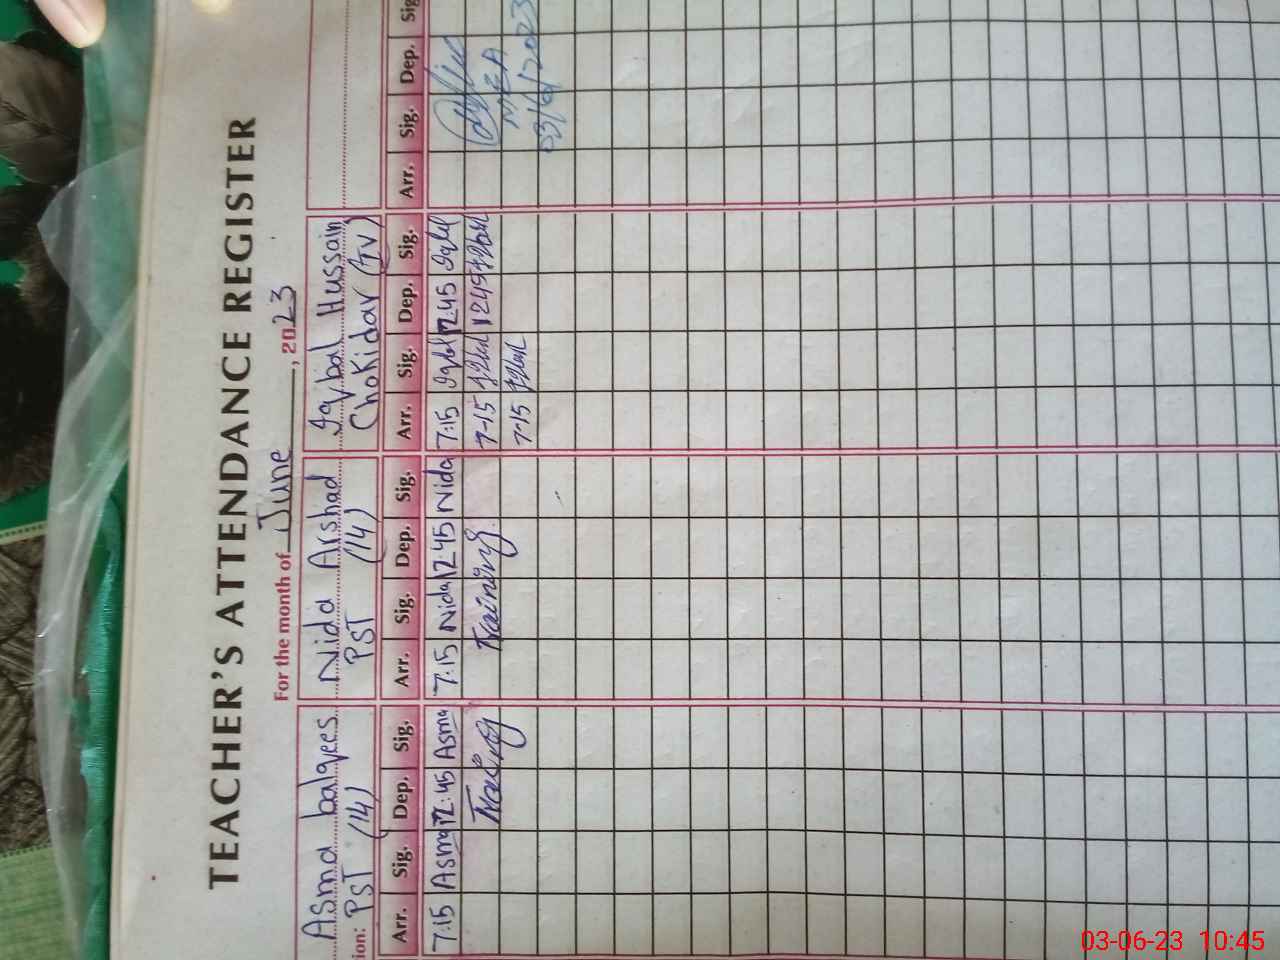 TEACHER'S ATTENDANCE REGISTER
For the month of June, 2023
Asma balqees Nida Arshad Iqbal Hussain
ion: PST (14) PST (14) Chokidar (IV)
Arr. Sig. Dep. Sig. Arr. Sig. Dep. Sig. Arr. Sig. Dep. Sig. Arr. Sig. Dep. Sig
7:15 Asma 12:45 Asma 7:15 Nida 12:45 Nida 7:15 Iqbal 12:45 Iqbal
Training Training 7-15 1245
7-15
MEA
03/6/2023
03-06-23 10:45